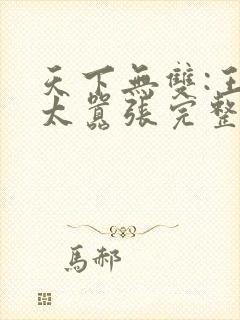 天下無雙:王
太囂張完整
馬郝